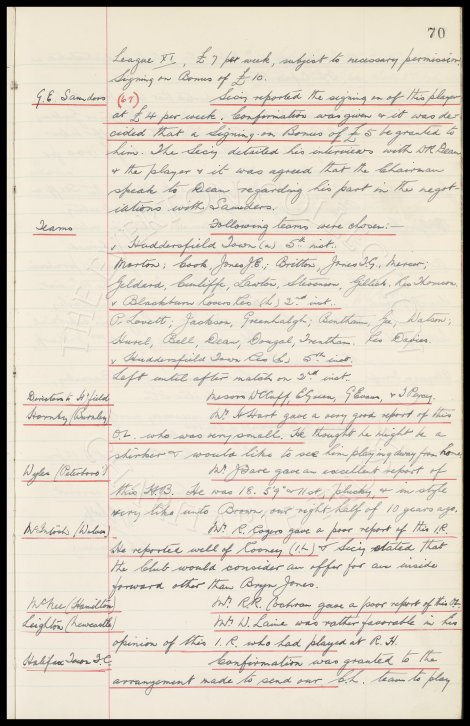 70
League XI, £7 per week, subject to necessary permission,
Signing on Bonus of £10.
G.E. Saunders (67) Secy reported the signing on of this player
at £4 per week. Confirmation was given & it was de
cided that a Signing on Bonus of £5 be granted to
him. The Secy detailed his interviews with W.R. Dean
& the player & it was agreed that the Chairman
speak to Dean regarding his part in the negot
iations with Saunders.
Teams Following teams were chosen:-
v Huddersfield Town (a) 5th inst.
Morton; Cook, Jones J.E.; Britton, Jones T.G., Mercer;
Geldard, Cunliffe, Lawton, Stevenson, Gillick. Res Thomson.
v Blackburn Rovers Res (h) 2nd inst.
P. Lovett; Jackson, Greenhalgh; Bentham, Gee, Watson;
Hurel, Bell, Dean, Dougal, Trentham. Res Davies.
v Huddersfield Town Res (h) 5th inst.
Left until after match on 2nd inst.
Directors to H'field Messrs W.C. Cuff, E. Green, G. Evans, & J. Percy.
Hornby (Burnley) Mr. H. Hart gave a very good report of this
O.L. who was very small. He thought he might be a
shirker & would like to see him playing away from home.
Wyles (Peterboro') Mr. J. Bare gave an excellent report of
this H.B. He was 18. 5'9" & 11 st, plucky, & in style
very like unto Brown, our right half of 10 years ago.
McIntosh Mr. R. Rogers gave a poor report of this I.R.
He reported well of Rooney (I.L.) & Secy stated that
the Club would consider an offer for an inside
forward other than Bryn Jones.
McNee (Hamilton) Mr. R.R. Cochran gave a poor report of this O.L.
Leighton (Newcastle) Mr. W. Laine was rather favorable in his
opinion of this I.R. who had played at R.H.
Halifax Town F.C. Confirmation was granted to the
arrangement made to send our C.L. team to play